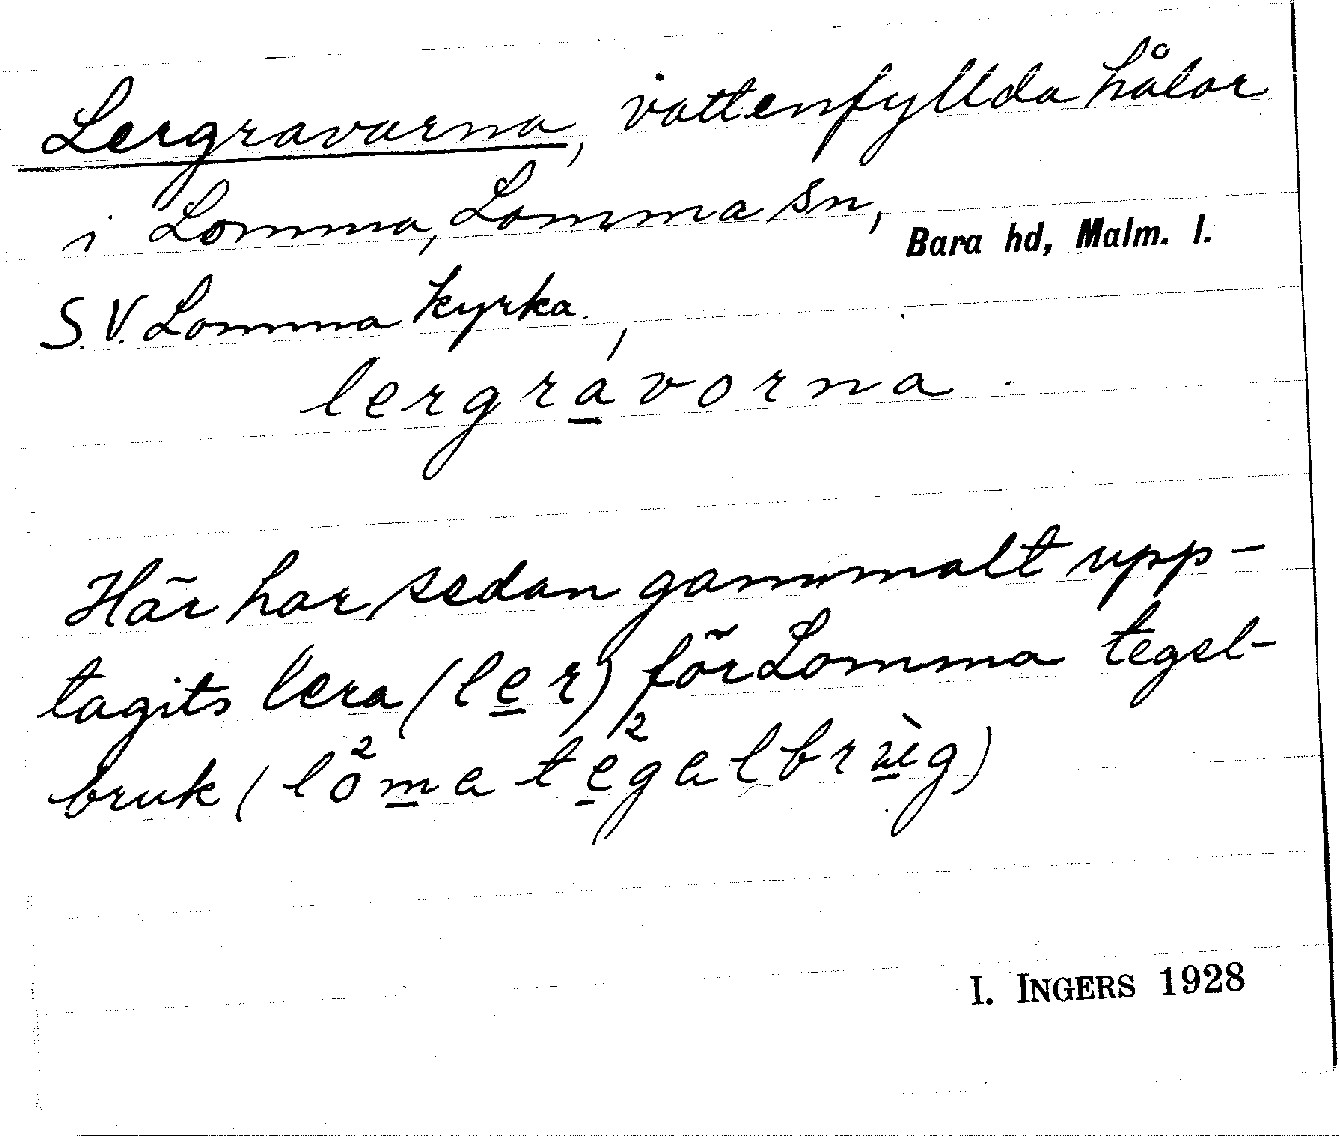 Lergravarna, vattenfyllda hålor
i Lomma, Lomma sn, Bara hd, Malm. l.
S.V. Lomma kyrka.
lergrávorna.
Här har sedan gammalt upp-
tagits lera (ler) för Lomma tegel-
bruk (lo²ma te²galbrùg)
I. INGERS 1928